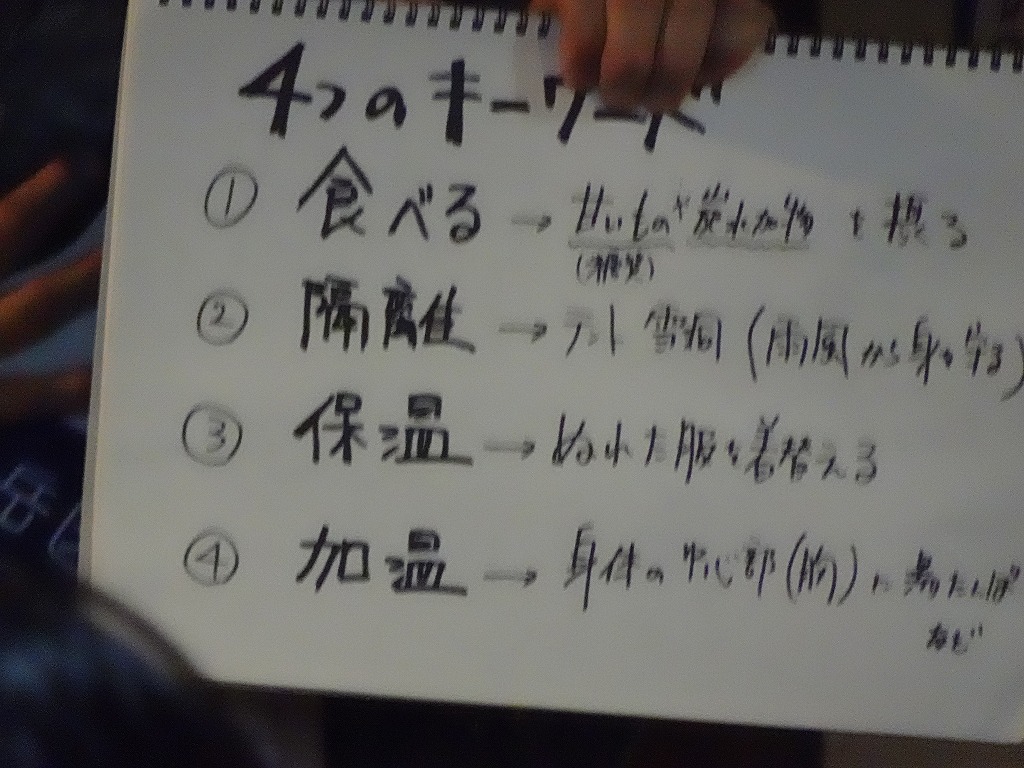 4つのキーワード
① 食べる → 甘いものや炭水化物を摂る
(糖質)
② 隔離 → テント 雪洞 (雨風から身を守る)
③ 保温 → ぬれた服を着替える
④ 加温 → 身体の中心部(胸)に湯たんぽ
など
岳